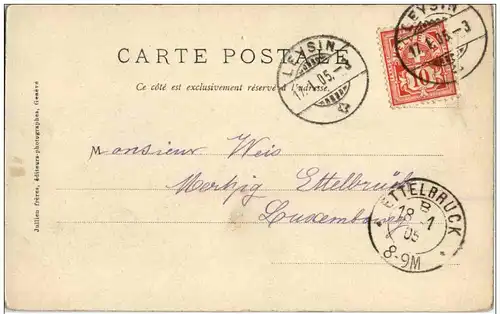 CARTE POSTALE
Ce côté est exclusivement réservé à l'adresse.
LEYSIN
17.1.05.-3
LEYSIN
17.1.05.-3
10
Monsieur Weis
Mertzig Ettelbrück
Luxembourg
ETTELBRUCK
B
18-1
05
8-9M
Jullien frères, éditeurs-photographes, Genève